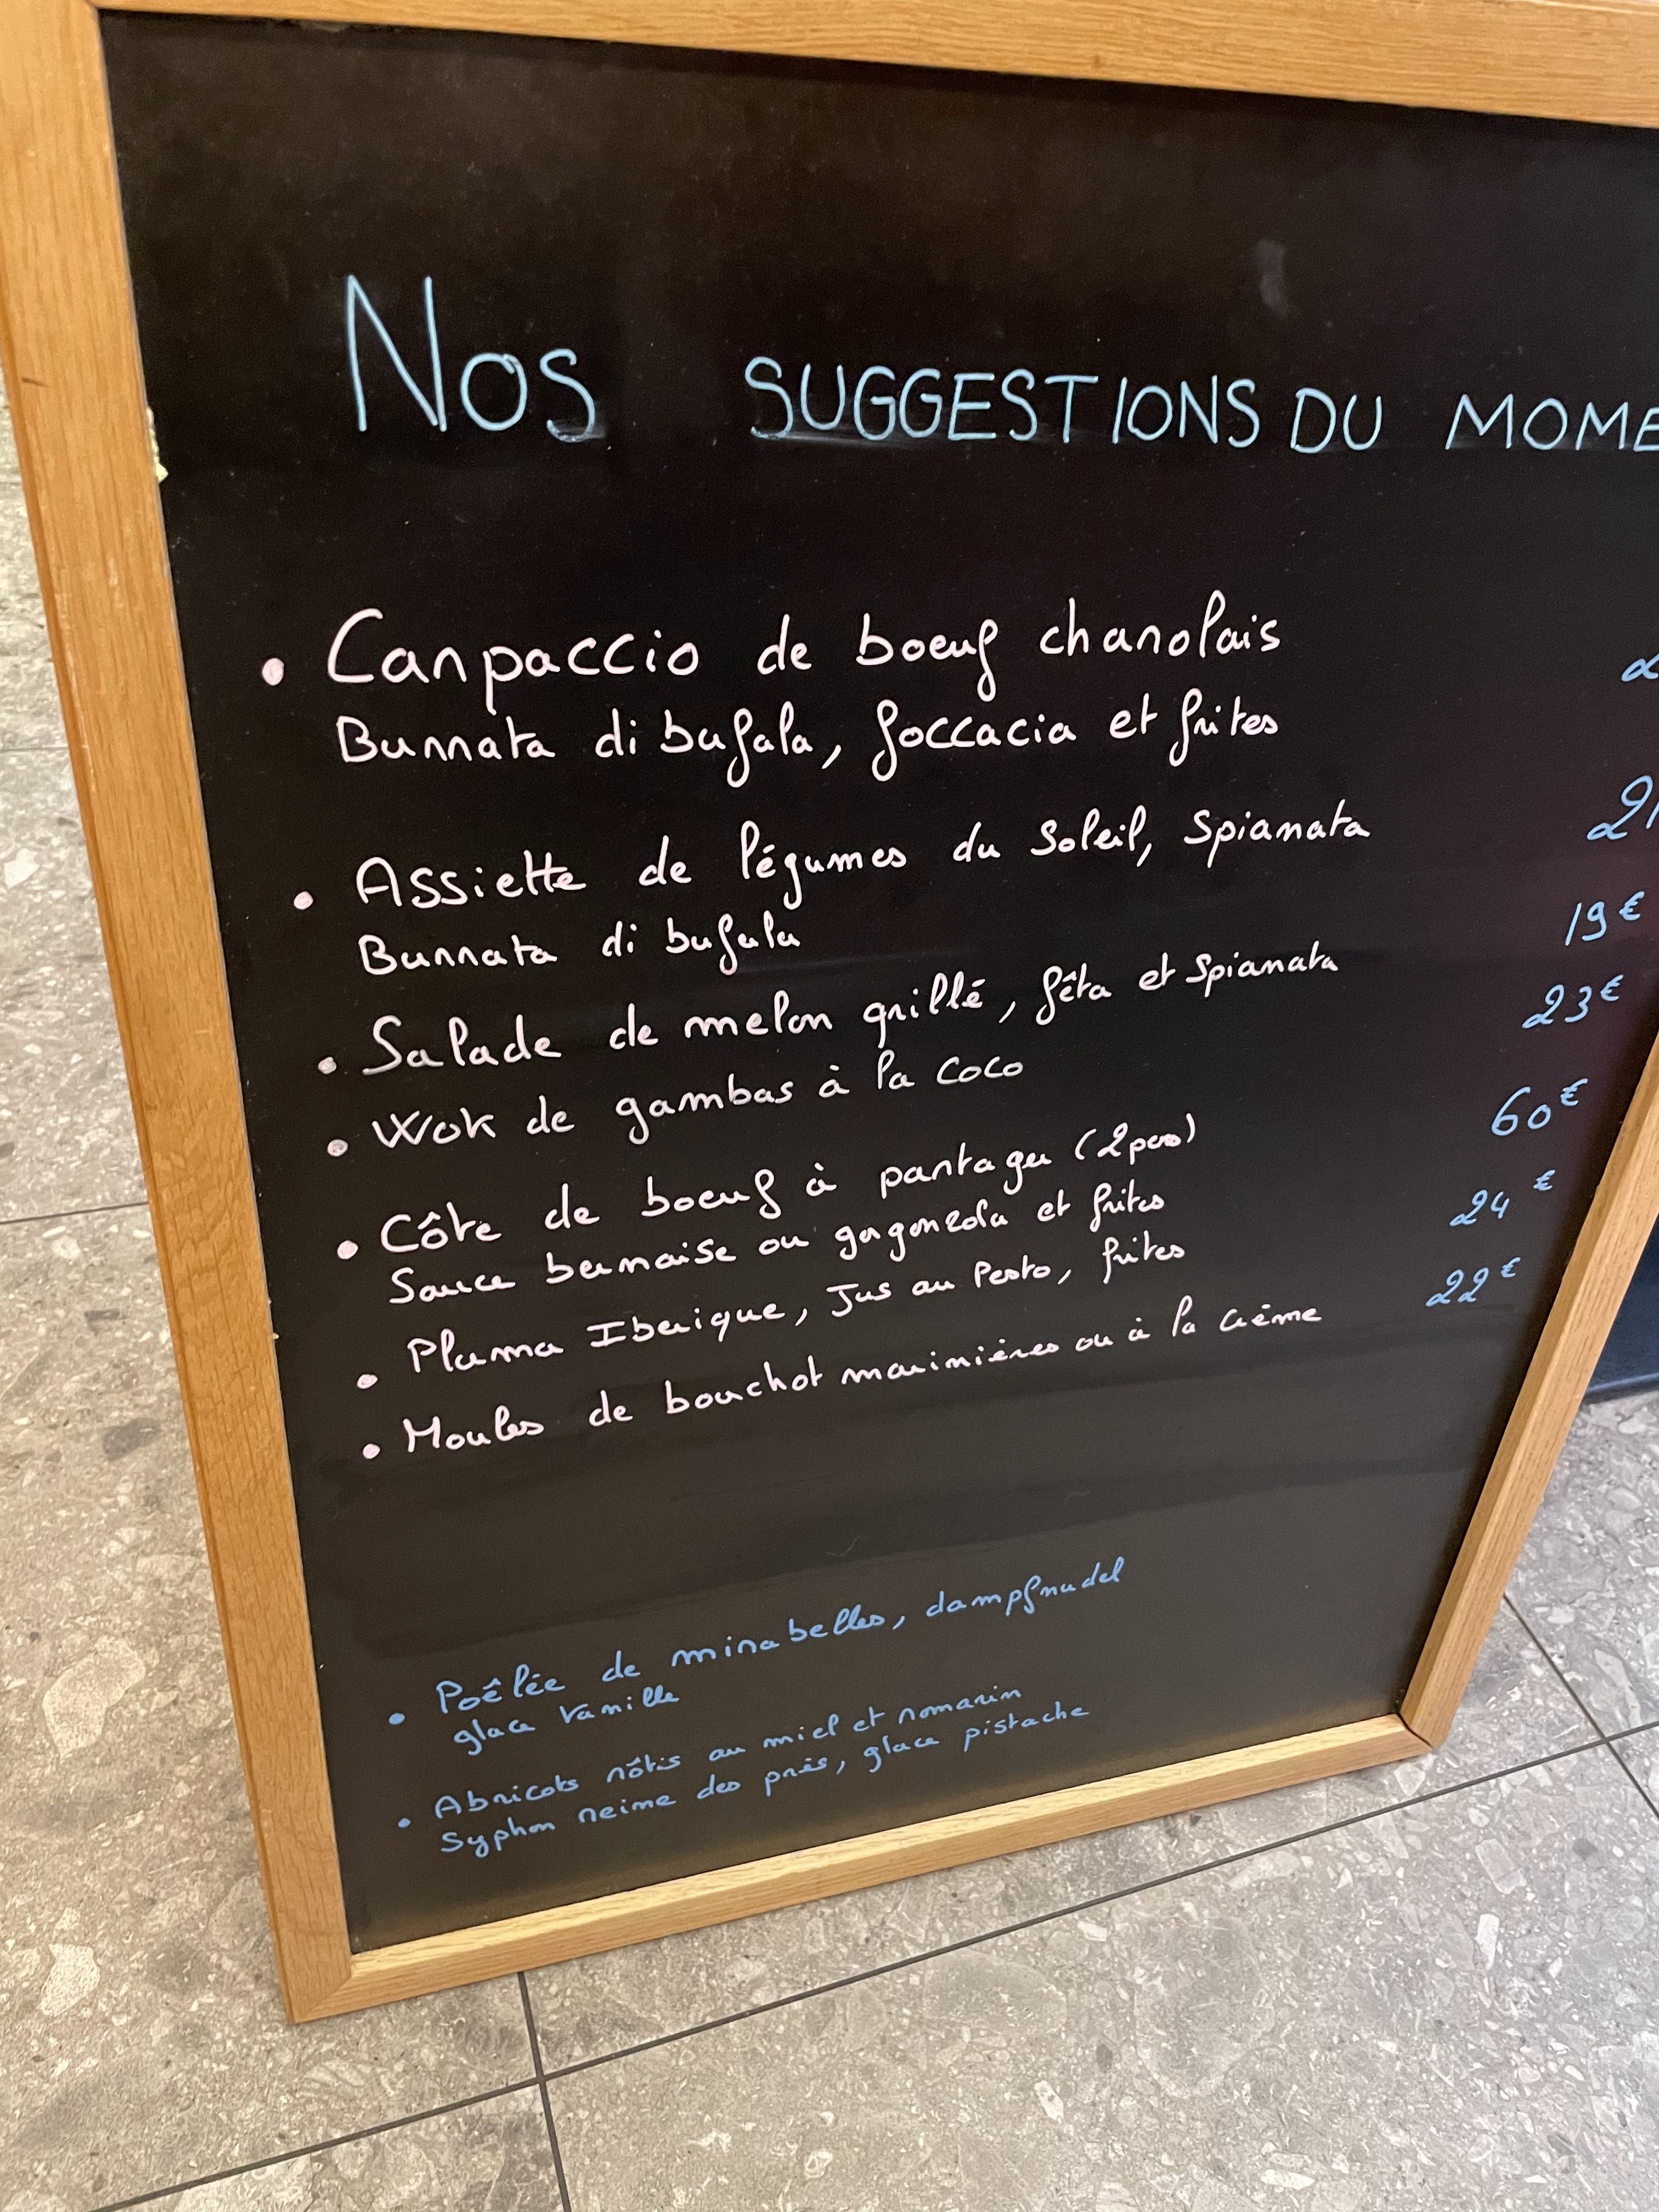 Nos SUGGESTIONS DU MOME
• Carpaccio de boeuf charolais
Burrata di bufala, foccacia et frites
• Assiette de légumes du Soleil, Spianata 21
Burrata di bufala
• Salade de melon grillé, fêta et Spianata 19€
• Wok de gambas à la coco 23€
• Côte de boeuf à partager (2 pers) 60€
Sauce bernaise ou gorgonzola et frites
• Pluma Iberique, Jus au Pesto, frites 24€
• Moules de bouchot marinières ou à la crème 22€
• Poêlée de mirabelles, dampfnudel
glace vanille
• Abricots rôtis au miel et romarin
Syphon reine des prés, glace pistache